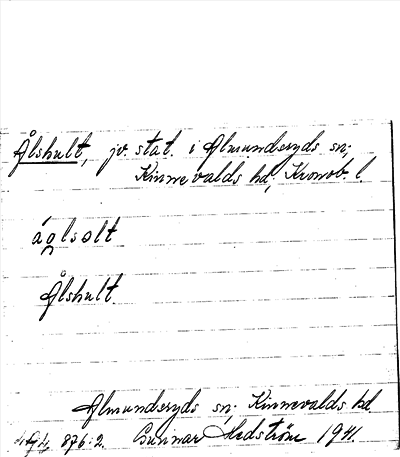 Ålshult, jv. stat. i Almundsryds sn;
Kinnevalds hd, Kronob. l.
áo̯lsolt
Ålshult.
Almundsryds sn; Kinnevalds hd.
876:2. Gunnar Hedström 1941.